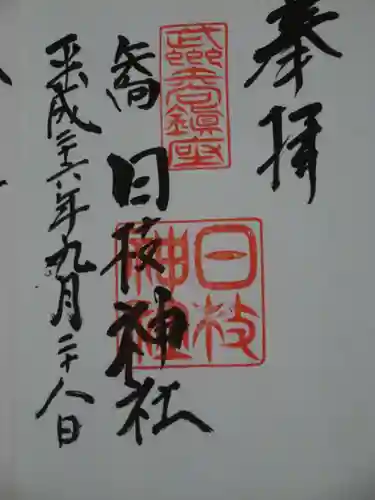 奉拝
武州高鎮座
日枝神社
高 日枝神社
平成二十六年九月二十八日